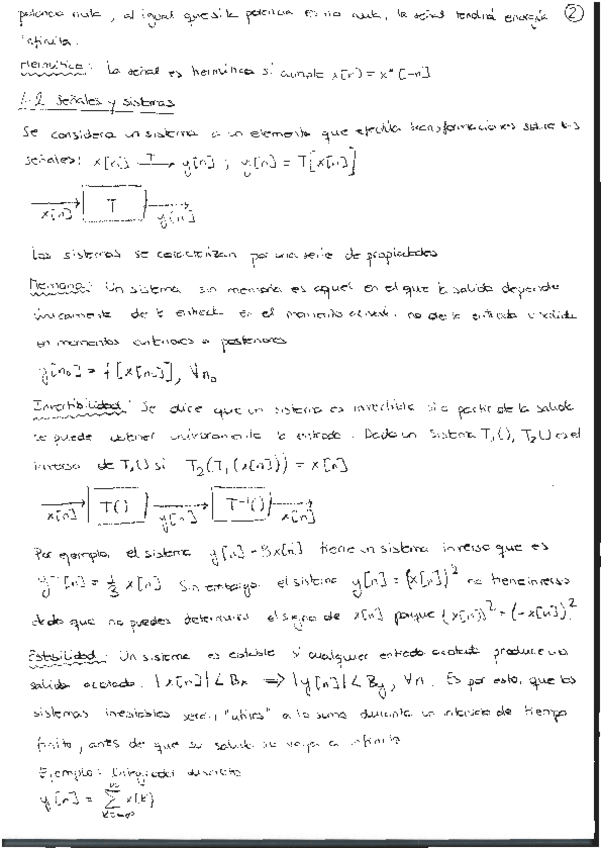 potencia nula, al igual que si la potencia es no nula, la señal tendrá energía ②
infinita.
Hermítica: La señal es hermítica si cumple x[n] = x*[-n]
1.2 Señales y sistemas
Se considera un sistema a un elemento que efectúa transformaciones sobre las
señales: x[n] —T→ y[n] ; y[n] = T[x[n]]
x[n] T y[n]
Los sistemas se caracterizan por una serie de propiedades
Memoria: Un sistema sin memoria es aquel en el que la salida depende
únicamente de la entrada en el momento actual, no de la entrada o salida
en momentos anteriores o posteriores
y[n₀] = f[x[n₀]], ∀n₀
Invertibilidad: Se dice que un sistema es invertible si a partir de la salida
se puede obtener unívocamente la entrada. Dado un sistema T₁(), T₂() es el
inverso de T₁() si T₂(T₁(x[n])) = x[n]
x[n] T() y[n] T⁻¹() x[n]
Por ejemplo, el sistema y[n] = 3x[n] tiene un sistema inverso que es
y⁻¹[n] = ⅓ x[n] Sin embargo el sistema y[n] = (x[n])² no tiene inverso
dado que no puedes determinar el signo de x[n] porque (x[n])² = (-x[n])².
Estabilidad: Un sistema es estable si cualquier entrada acotada produce una
salida acotada. |x[n]| < Bx ⟹ |y[n]| < By, ∀n. Es por esto, que los
sistemas inestables serán "útiles" a lo sumo durante un intervalo de tiempo
finito, antes de que su salida se vaya a infinito
Ejemplo: Integrador discreto
y[n] = Σ x[k]